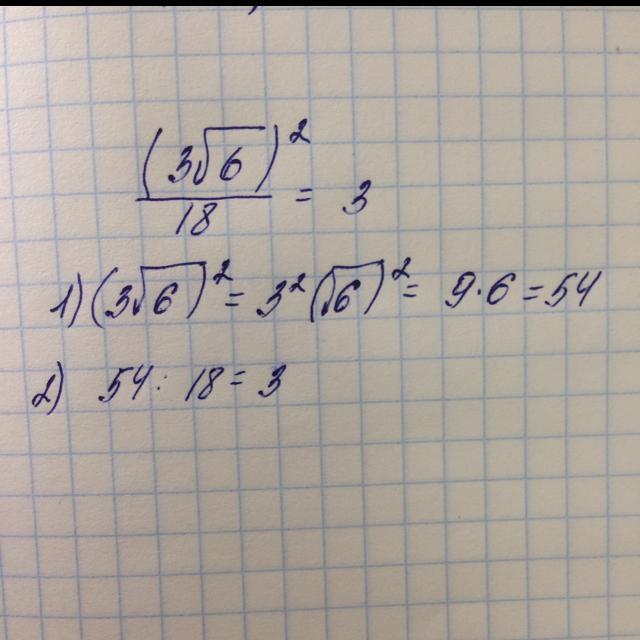 (3√6)²
18 = 3
1) (3√6)² = 3² (√6)² = 9·6 = 54
2) 54 : 18 = 3